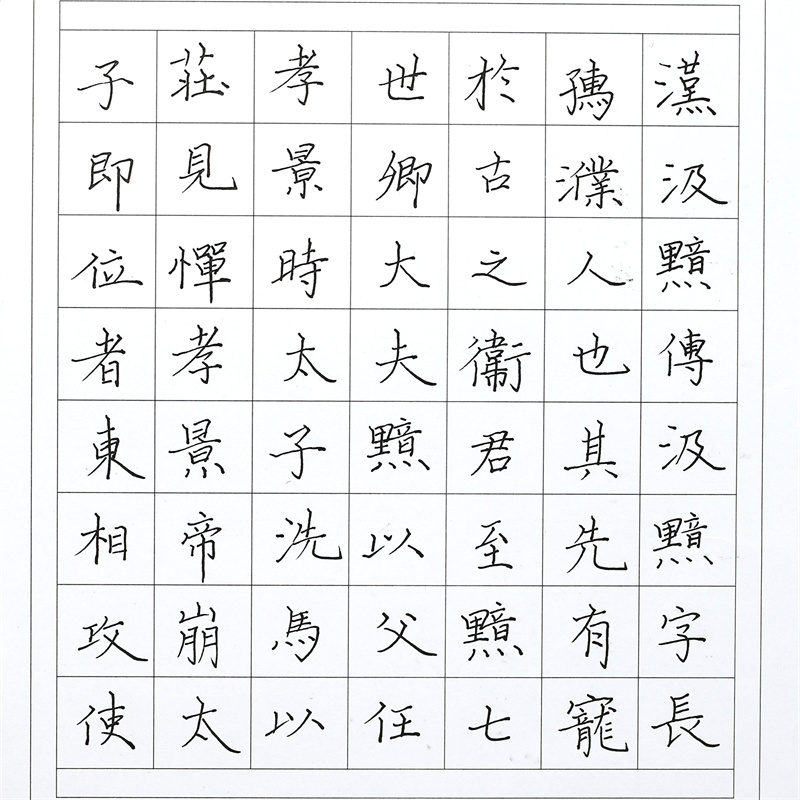 漢汲黯傳汲黯字長
孺濮人也其先有寵
於古之衞君至黯七
世卿大夫黯以父任
孝景時太子洗馬以
莊見憚孝景帝崩太
子即位者東相攻使